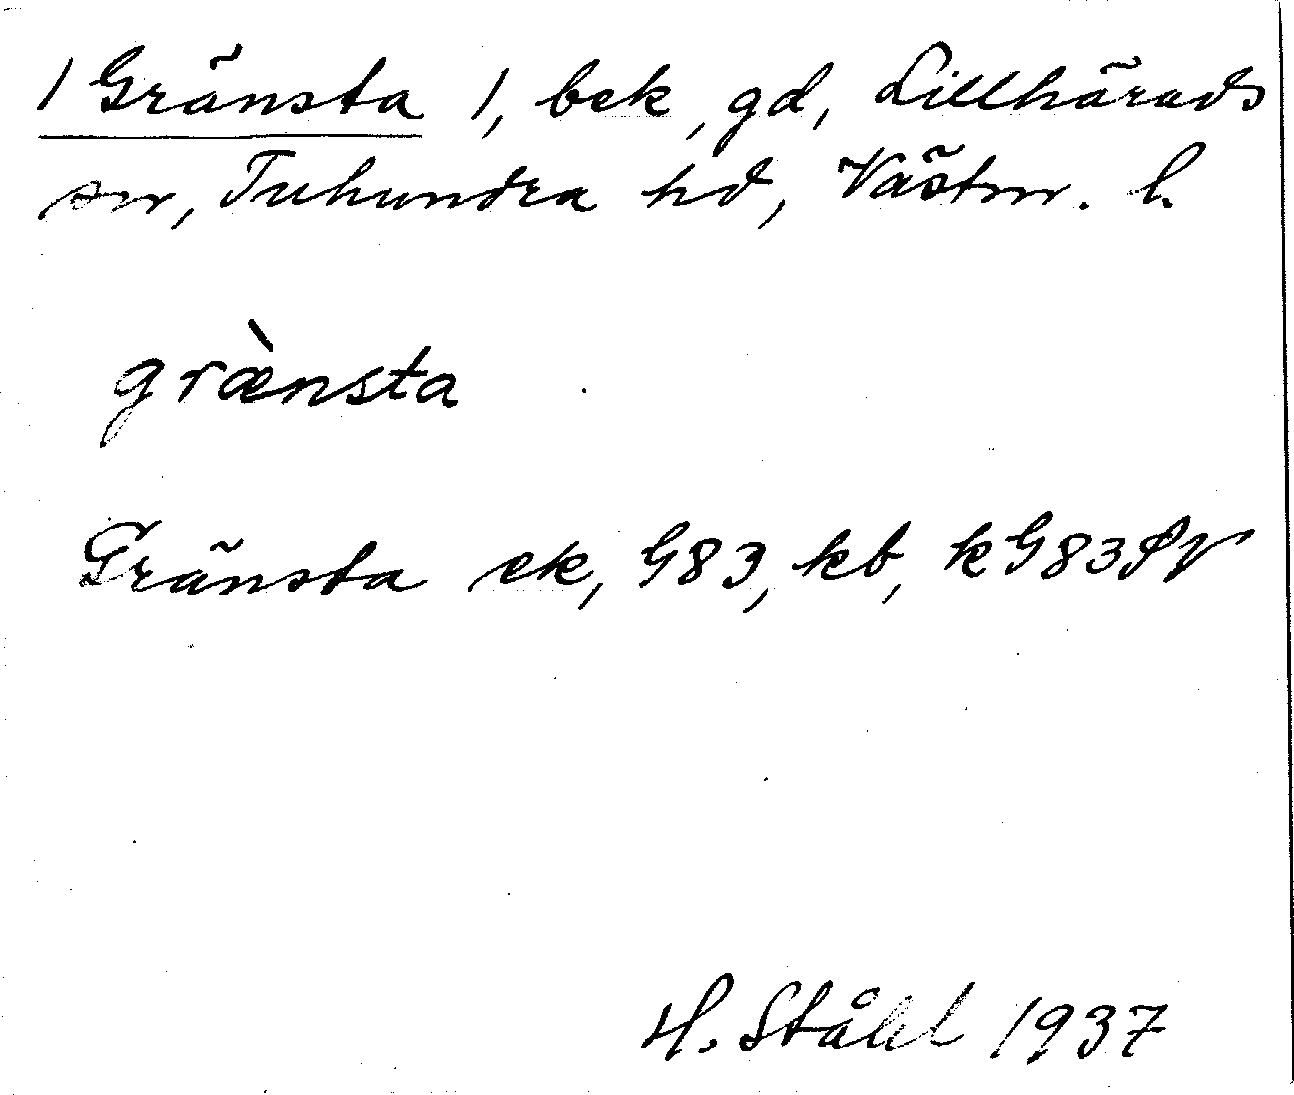 1 Gränsta 1, bek, gd, Lillhärads
sn, Tuhundra hd, Västm. l.
grænsta
Gränsta ek, G83, kb, kG83Sv
H. Ståhl 1937